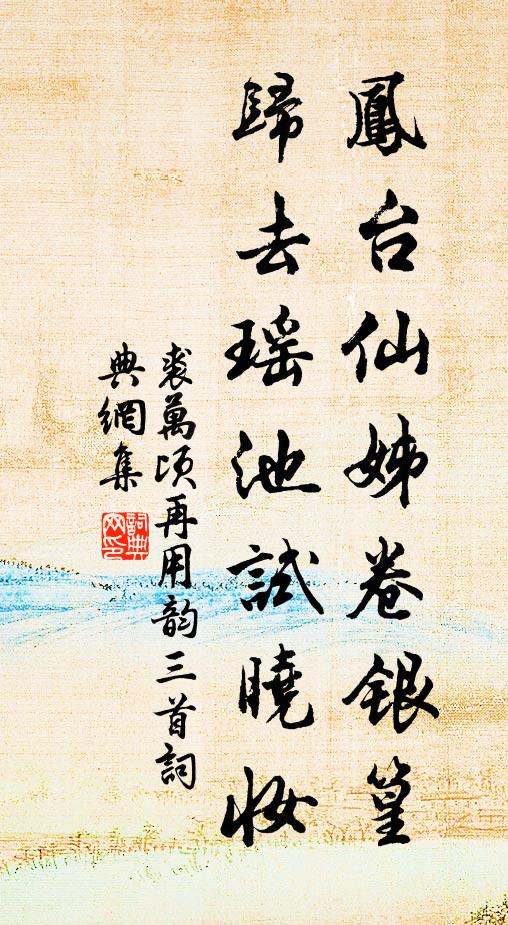 鳳台仙姊卷銀篁
歸去瑶池試曉妝
裘萬頃再用韵三首詞
典網集
詞典
网印